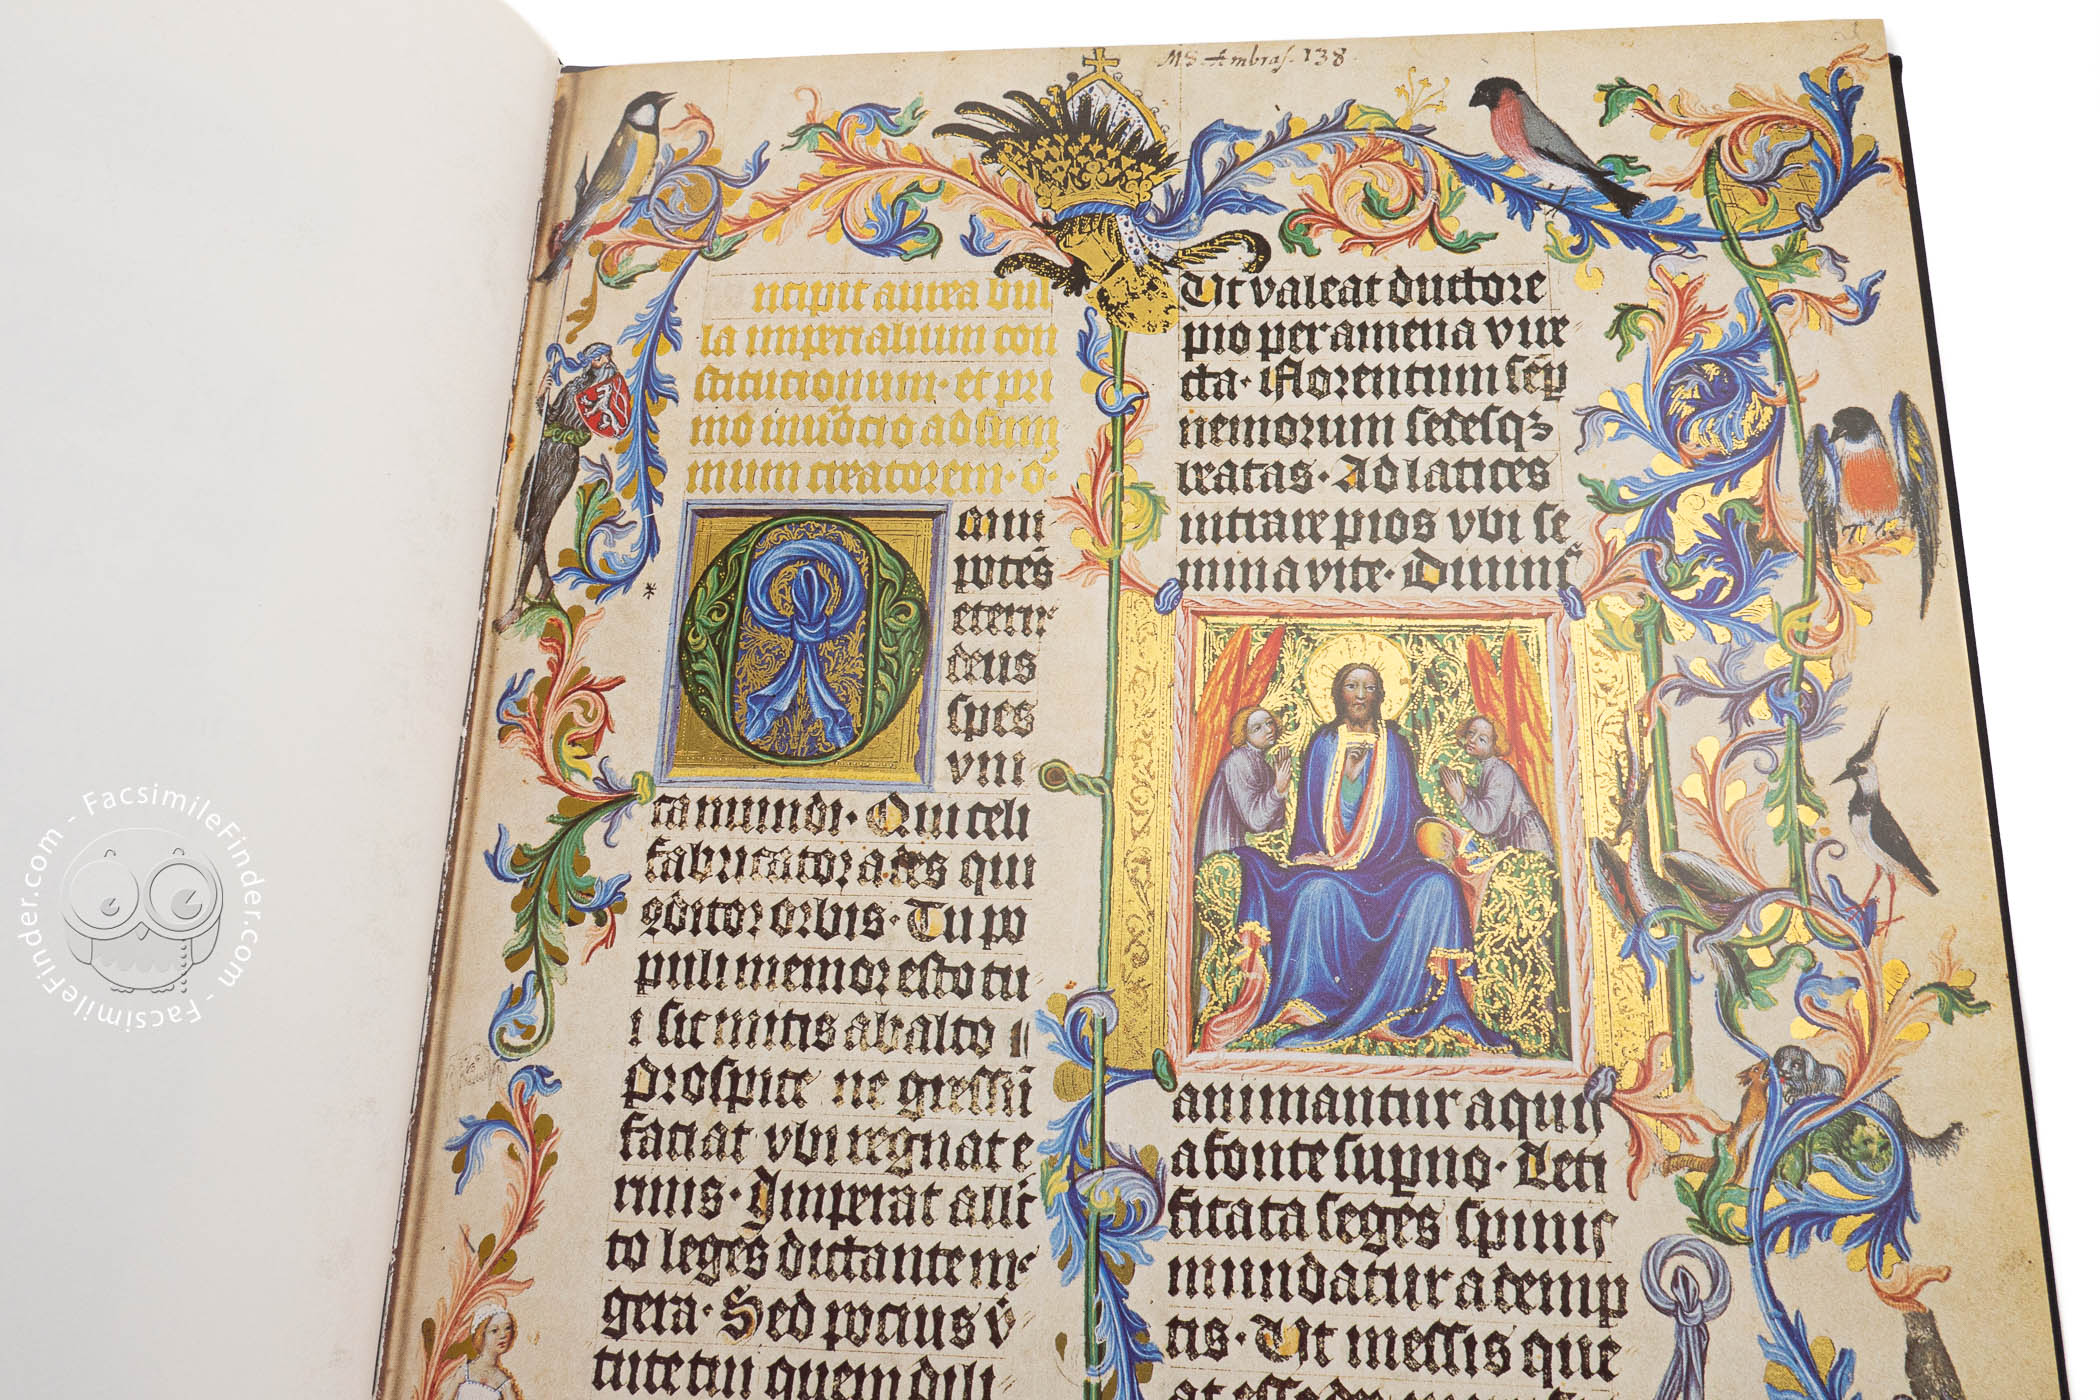 MS Ambras. 138.
ncipit aurea bul
la imperialium con
stitucionum · et pri
mo inuocio ad sum
mum creatorem · o
mni
potēs
eterne
deus
spes
vni
ca mundi · Qui celi
fabricator ades qui
conditor orbis · Tu po
puli memor esto tu
i sic mitis ab alto
prospice ne gressū
faciat vbi regnat e
rinis · Imperat alle
to leges dictante me
gera · Sed pocius v̄
tute tui quem dili
Ut valeat ductore
pio per amena vire
cta · Florentum semp
nemorum sedesqʒ
beatas · Ad latices
intrare pios vbi se
mina vite · Diuinis
animantur aquis
a fonte supno · Leti
ficata seges spinis
mundatur ademp
tis · Ut messis que
at esse dei
FacsimileFinder.com - FacsimileFinder.com - FacsimileFinder.com